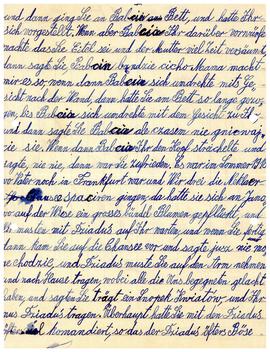 und dann ging Sie in Babcia ans Bett, und hatte Ihr
sich vorgestellt. Wenn aber Babcia Ihr darüber vorwürfe
machte das Sie Eitel sei und der Mutter viel Zeit versäumt,
dann sagte Sie Babcia bądzie cicho Muma macht
mir es so, wenn dann Babcia sich umdrehte mit Ge=
sicht nach der Wand, dann hatte Sie am Bett so lange gewor
gen, bis Babcia sich umdrehte mit dem Gesicht zu Ihr
und dann sagte Sie Babcia ale czasem nie gniewaj
cie sie. Wenn dann Babcia Ihr den Kopf streichelte und
sagte, nie nie, dann war Sie zufrieden. Es war im Sommer 1916
wo Vater noch in Frankfurt war und Wir drei die Mutter
na spacer gingen, da hatte sie sich
auf der Wiese ein grosses bündel Blumen gepflückt, und
musten mit Tiadus auf Ihr warten, und wenn Sie fertig
dann kam Sie auf die Chausee vor und sagte juz nie mo
ge chodzić, und Tiadus muste Sie auf dem Arm nehmen
und nach Hause tragen, wobei alle die Uns begegneten gelacht
haben, und sagten Sie trägt ein Snopek Kwiatow, und Ihr
Tiadus tragen. Überhaupt hatte Sie mit den Tiadus
komandiert, so das der Tiadus öfters Böse